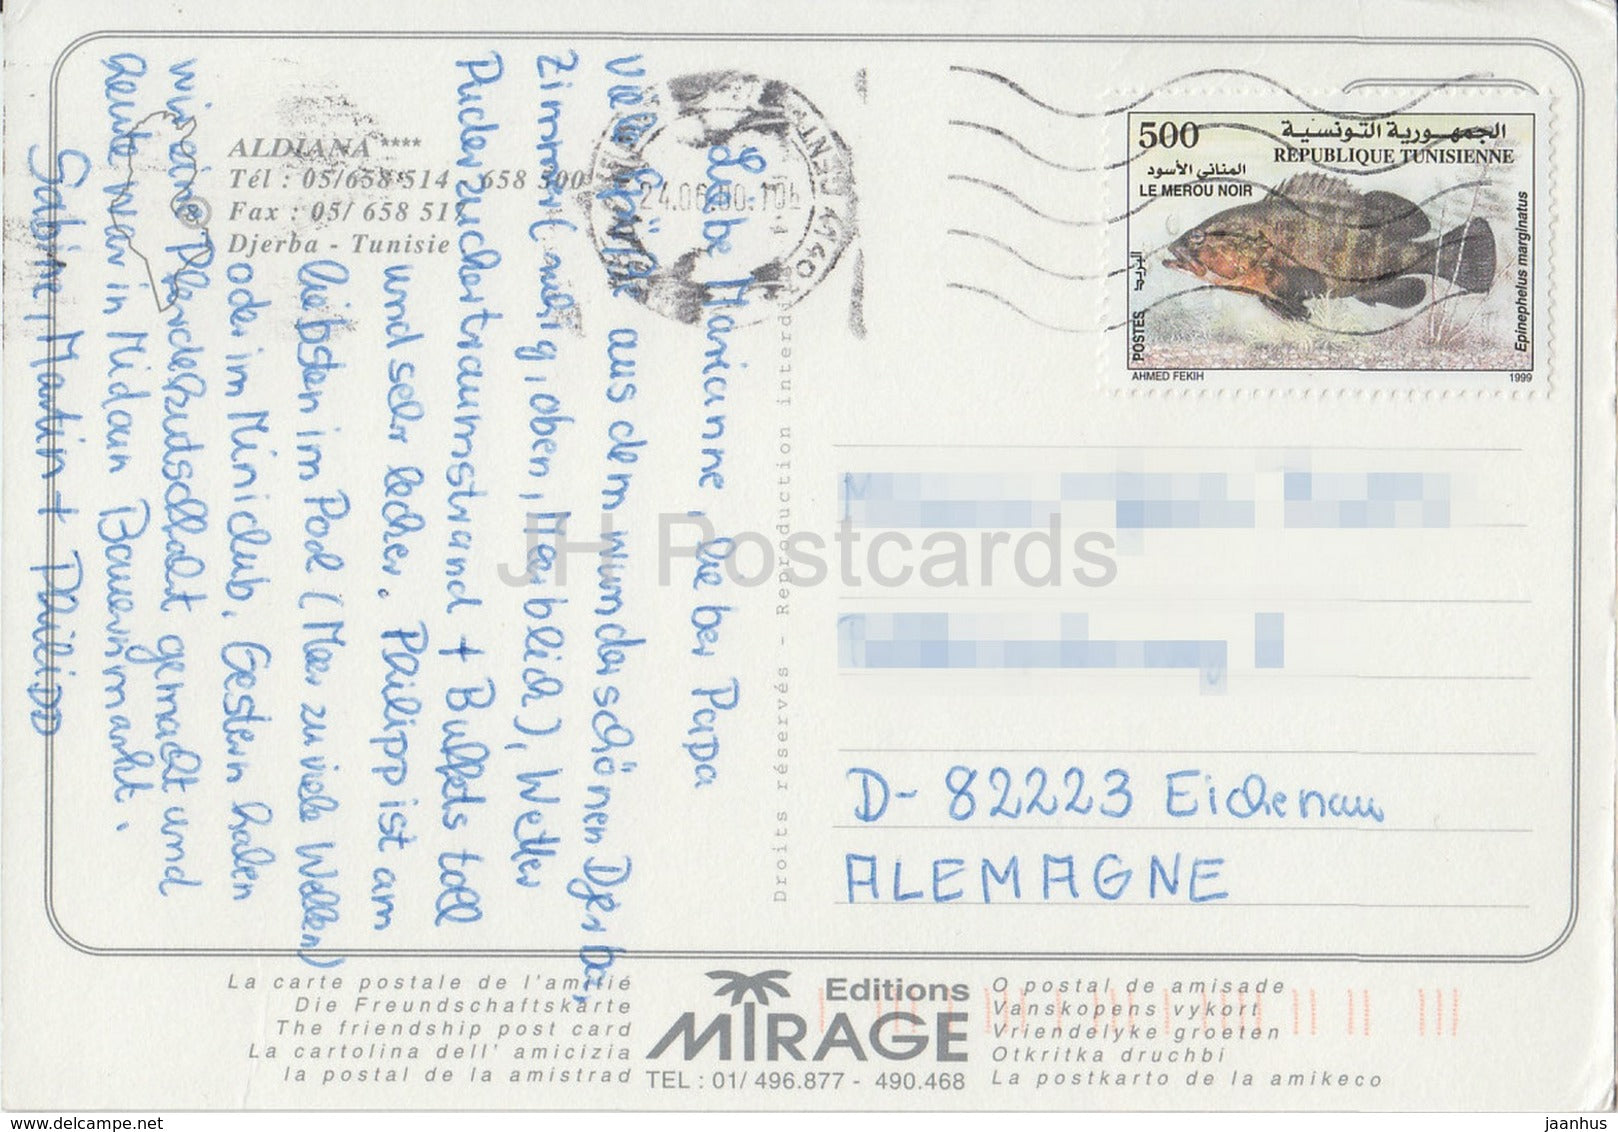 ALDIANA ****
Tél : 05/658 514 - 658 500
Fax : 05/ 658 517
Djerba - Tunisie
Liebe Marianne, lieber Papa
viele Grüße aus dem wunderschönen Djerba,
Zimmer (ruhig, oben, Meerblick), Wetter
Puderzuckertraumstrand + Buffets toll
und sehr lecker. Philipp ist am
liebsten im Pool (Meer zu viele Wellen)
oder im Miniclub. Gestern haben
wir eine Pferdekutschfahrt gemacht und
heute war in Midoun Bauernmarkt.
Sabine, Martin + Philipp
24.06.00.10h
500
الجمهورية التونسية
REPUBLIQUE TUNISIENNE
المناني الأسود
LE MEROU NOIR
البريد
POSTES
Epinephelus marginatus
AHMED FEKIH
1999
Droits réservés - Reproduction interdite
D-82223 Eichenau
ALEMAGNE
JH Postcards
La carte postale de l'amitié
Die Freundschaftskarte
The friendship post card
La cartolina dell' amicizia
la postal de la amistrad
Editions
MIRAGE
TEL : 01/ 496.877 - 490.468
O postal de amisade
Vanskopens vykort
Vriendelyke groeten
Otkritka druchbi
La postkarto de la amikeco
www.delcampe.net
jaanhus